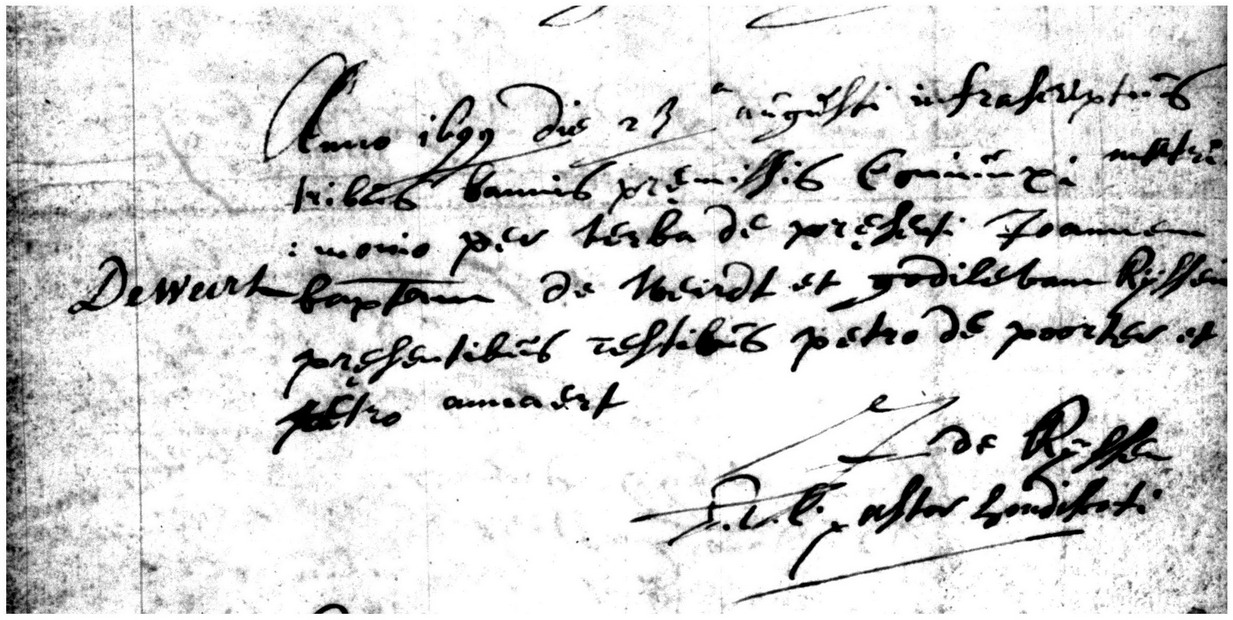 Anno 1699 die 23a augusti infrascriptus
tribus bannis præmissis Coniunxi matri
:monio per verba de præsenti Joannem
De weert baptam de Weirdt et godilevam Rijssen
præsentibus testibus petro de poorter et
petro annaert
de Rijssen
pastor hondiscoti